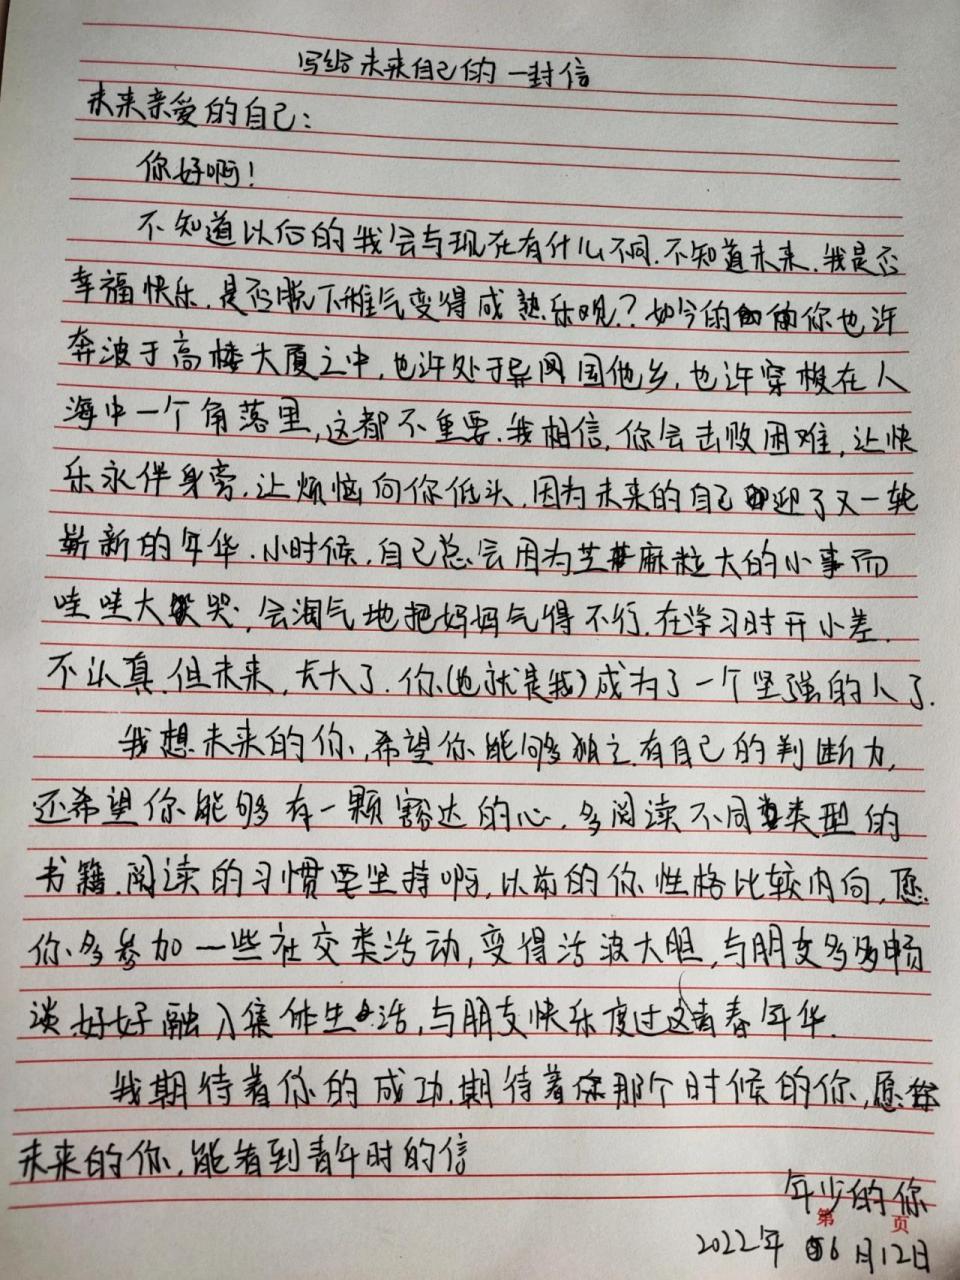 写给未来自己的一封信
未来亲爱的自己：
你好啊！
不知道以后的我会与现在有什么不同.不知道未来.我是否
幸福快乐.是否脱下稚气变得成熟乐观？如今的你也许
奔波于高楼大厦之中,也许处于异国他乡,也许穿梭在人
海中一个角落里,这都不重要.我相信,你会击败困难,让快
乐永伴身旁.让烦恼向你低头.因为未来的自己迎了又一轮
崭新的年华.小时候.自己总会因为芝麻粒大的小事而
哇哇大哭,会淘气地把妈妈气得不行.在学习时开小差.
不认真.但未来,长大了.你(也就是我)成为了一个坚强的人了.
我想未来的你,希望你能够独立.有自己的判断力,
还希望你能够有一颗豁达的心.多阅读不同类型的
书籍.阅读的习惯要坚持啊,以前的你性格比较内向,愿
你多参加一些社交类活动,变得活波大胆,与朋友多多畅
谈.好好融入集体生活,与朋友快乐度过这青春年华.
我期待着你的成功.期待着那个时候的你,愿
未来的你,能看到青年时的信
年少的你
第 页
2022年 6月12日